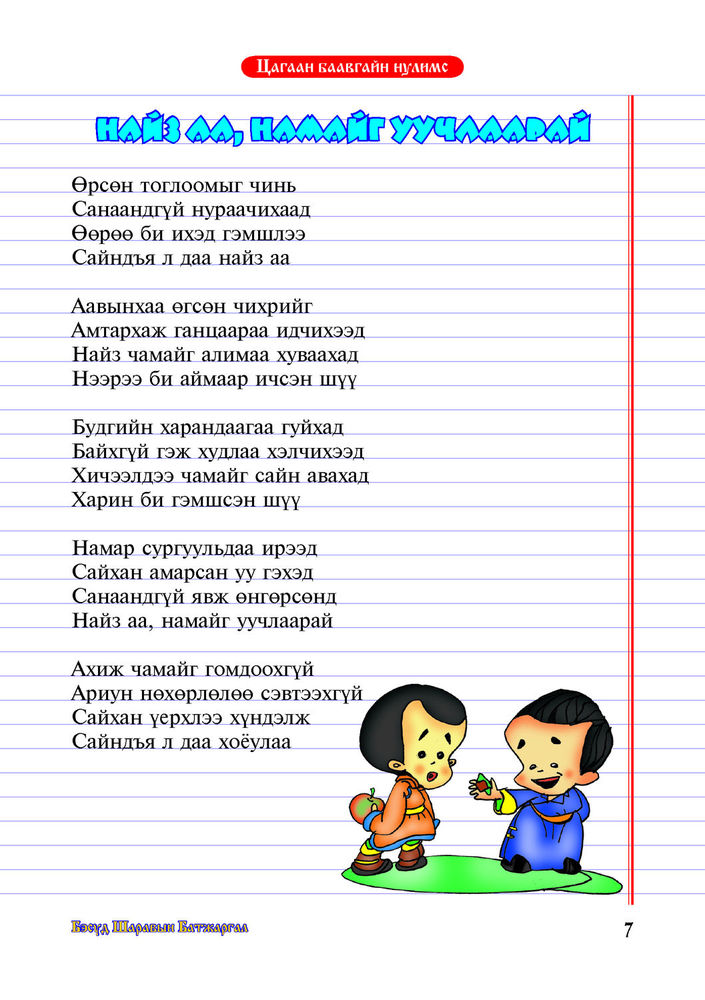 Цагаан баавгайн нулимс
НАЙЗ АА, НАМАЙГ УУЧЛААРАЙ
Өрсөн тоглоомыг чинь
Санаандгүй нураачихаад
Өөрөө би ихэд гэмшлээ
Сайндъя л даа найз аа
Аавынхаа өгсөн чихрийг
Амтархаж ганцаараа идчихээд
Найз чамайг алимаа хуваахад
Нээрээ би аймаар ичсэн шүү
Будгийн харандаагаа гуйхад
Байхгүй гэж худлаа хэлчихээд
Хичээлдээ чамайг сайн авахад
Харин би гэмшсэн шүү
Намар сургуульдаа ирээд
Сайхан амарсан уу гэхэд
Санаандгүй явж өнгөрсөнд
Найз аа, намайг уучлаарай
Ахиж чамайг гомдоохгүй
Ариун нөхөрлөлөө сэвтээхгүй
Сайхан үерхлээ хүндэлж
Сайндъя л даа хоёулаа
Бэсүд Шаравын Батжаргал
7